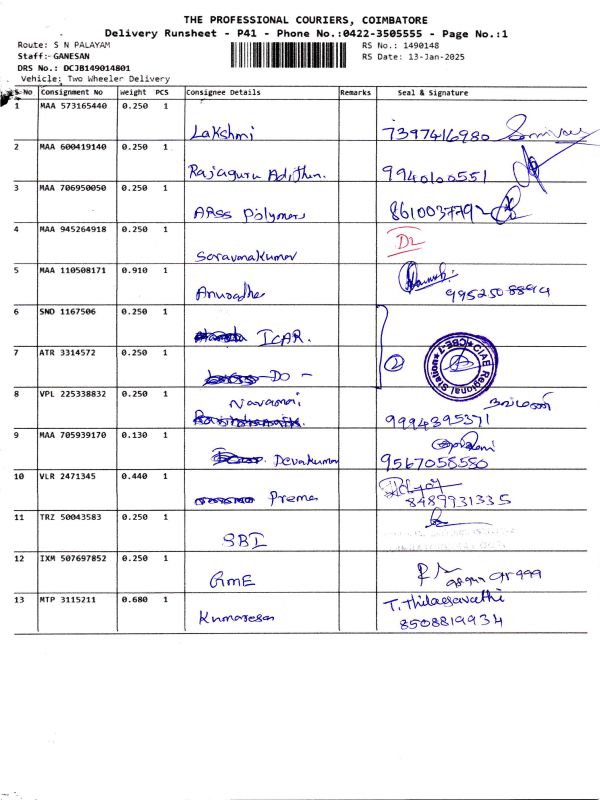 THE PROFESSIONAL COURIERS, COIMBATORE
Delivery Runsheet - P41 - Phone No.:0422-3505555 - Page No.:1
Route: S N PALAYAM RS No.: 1490148
Staff:- GANESAN RS Date: 13-Jan-2025
DRS No.: DCJB149014801
Vehicle: Two Wheeler Delivery
S No Consignment No Weight PCS Consignee Details Remarks Seal & Signature
1 MAA 573165440 0.250 1
Lakshmi 7397416980
2 MAA 600419140 0.250 1
Rajaguru Adithan. 9940100551
3 MAA 706950050 0.250 1
APSS Polymers
4 MAA 945264918 0.250 1
Saravanakumar D2
5 MAA 110508171 0.910 1
Anuradha 9952508894
6 SND 1167506 0.250 1
ICAR.
7 ATR 3314572 0.250 1
- DO - 2
CIAE Regional Station CBE-7
8 VPL 225338832 0.250 1
Navamani நவமணி
9994395371
9 MAA 705939170 0.130 1
Devakumar 9567058580
10 VLR 2471345 0.440 1
Prema 8489931335
11 TRZ 50043583 0.250 1
SBI
12 IXM 507697852 0.250 1
GME
13 MTP 3115211 0.680 1
Kumaresan T. Thilagavathi
8508819934